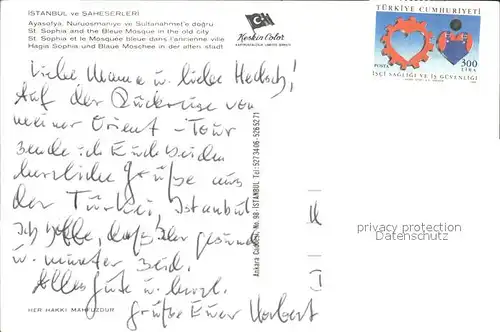 İSTANBUL ve ŞAHESERLERİ
Ayasofya, Nuruosmaniye ve Sultanahmet'e doğru
St. Sophia and the Bleue Mosque in the old city
St. Sophia et le Mosquée bleue dans l'ancienne ville
Hagia Sophia und Blaue Moschee in der alten stadt
Keskin Color
KARTPOSTALCILIK LIMITED ŞİRKETİ
TÜRKİYE CUMHURİYETİ
POSTA
300
LİRA
İŞÇİ SAĞLIĞI VE İŞ GÜVENLİĞİ
Liebe Mama u. liebe Hedsch!
Auf der Rückreise von
meiner Orient-Tour
sende ich Euch beiden
herzliche Grüße aus
der Türkei, Istanbul.
Ich hoffe, daß Ihr gesund
u. munter seid.
Alles Gute u. herzl.
Grüße Euer Norbert
Ankara Caddesi, No. 98-İSTANBUL Tel: 5273406-5265271
privacy protection
HER HAKKI MAHFUZDUR